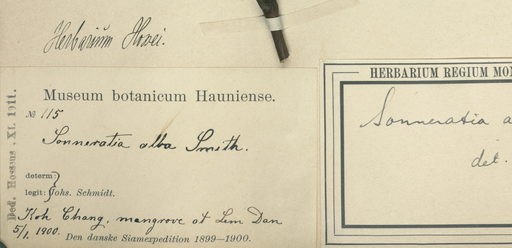 Herbarium Horei.
Ded. Hosseus. XI. 1911.
Museum botanicum Hauniense.
№ 115
Sonneratia alba Smith.
determ:
legit: Johs. Schmidt.
Koh Chang, mangrove at Lem Dan
5/1, 1900.
Den danske Siamexpedition 1899—1900.
HERBARIUM REGIUM MON
Sonneratia a
det.